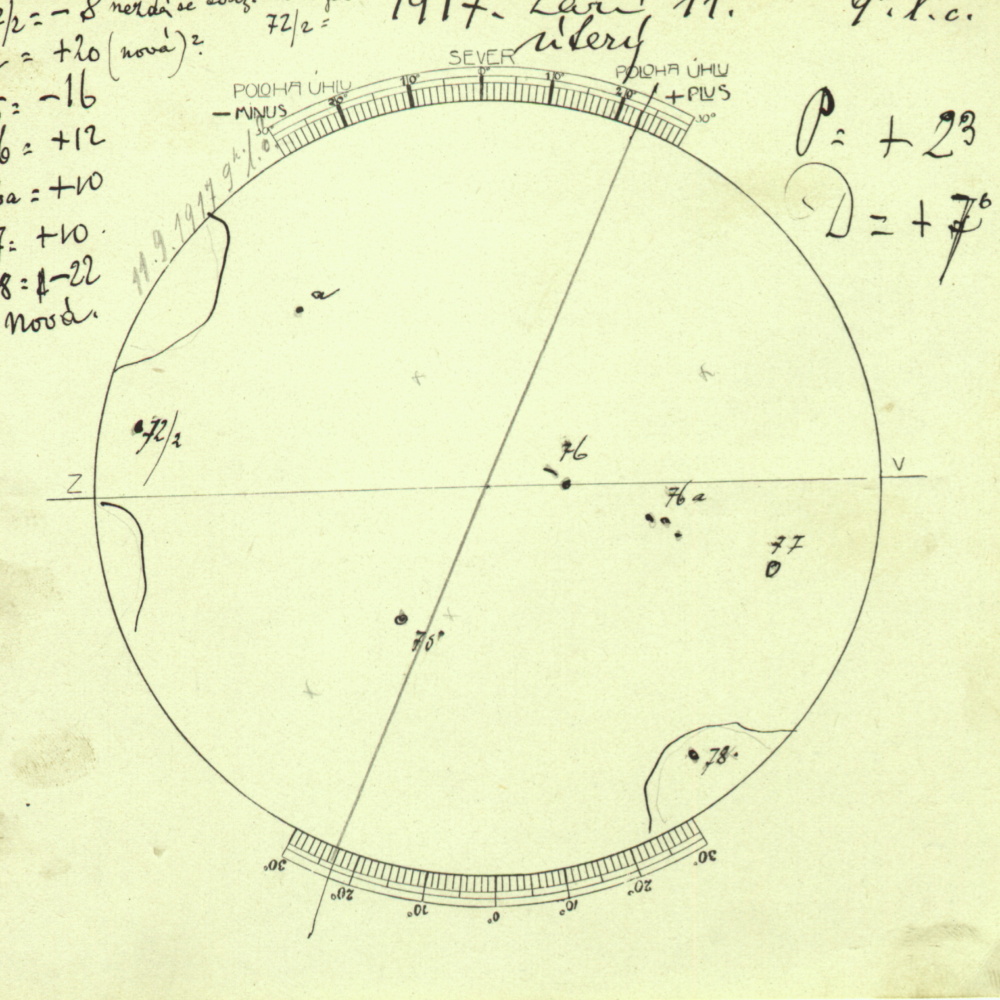 /2 = - 8 nezdá se
72/2 =
= +20 (nová)?
= -16
6 = +12
a = +10
7 = +10.
8 = -22
nová.
1917. Září 11. 9h. l. č.
úterý
SEVER
POLOHA ÚHLU
- MINUS
POLOHA ÚHLU
+ PLUS
30° 20° 10° 0° 10° 20° 30°
11.9.1917 9h. l. č.
P = + 23
D = + 7
a
72/2
76
Z
V
76 a
77
75
78
30° 20° 10° 0° 10° 20° 30°